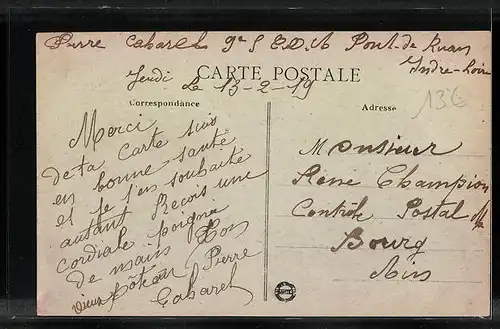 Pierre Cabaret 9e S E.D.A Pont-de Ruan
Indre-Loire
Jeudi le 13-2-19
CARTE POSTALE
Correspondance
Adresse
136
Merci
de ta carte suis
en bonne santé
et je t'en souhaite
autant Recois une
cordiale poignée
de mains Ton
vieux pôteau Pierre
Cabaret
Monsieur
René Champion
Contrôle Postal
Bourg
Ain